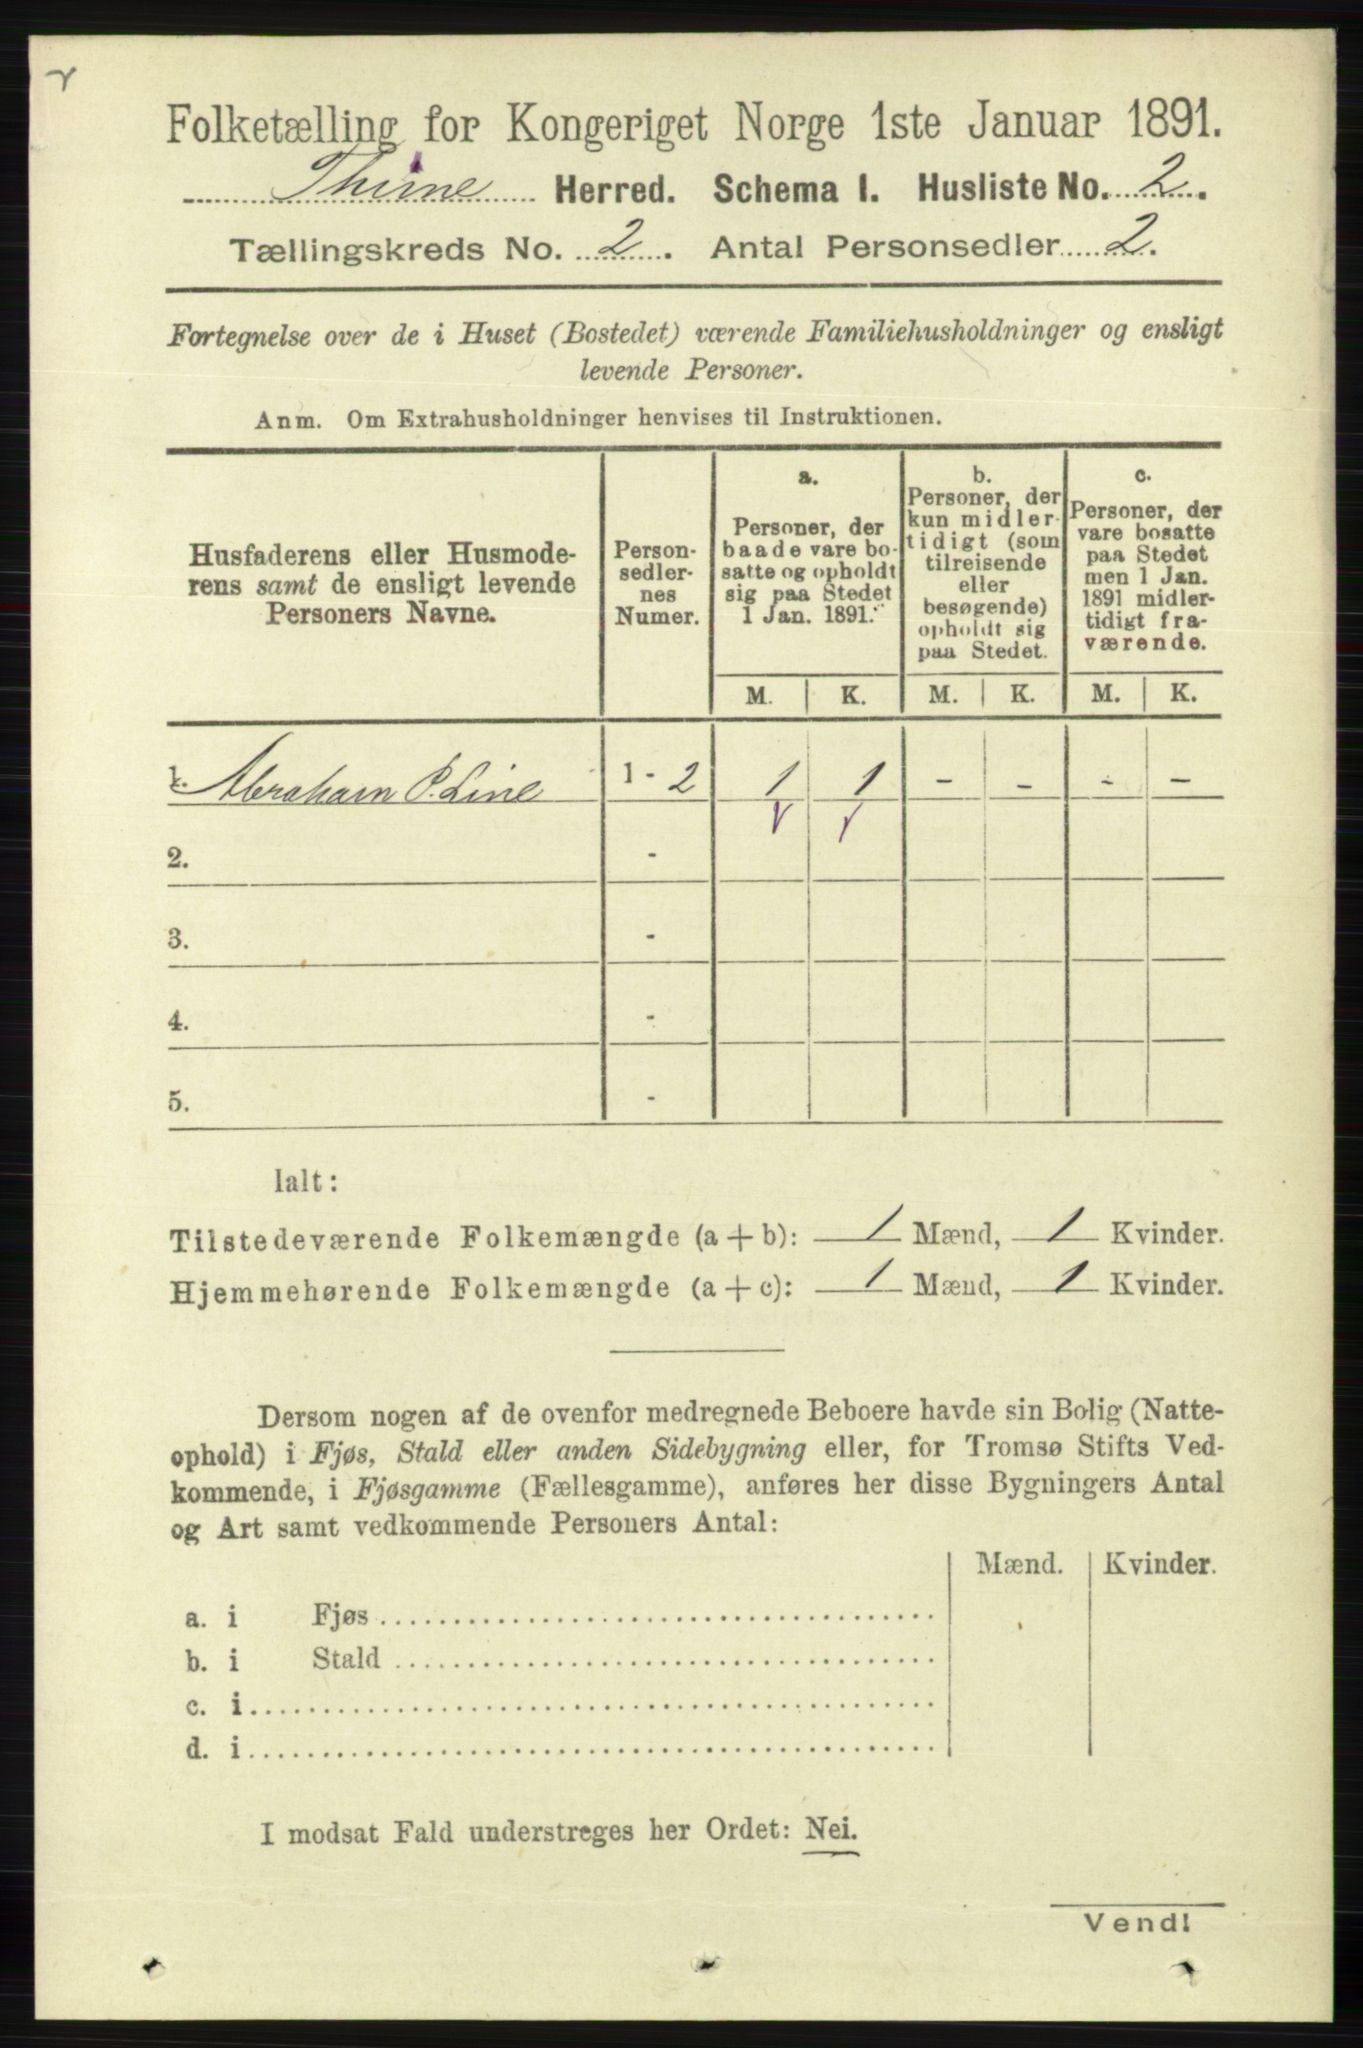 Folketælling for Kongeriget Norge 1ste Januar 1891.
Thime Herred. Schema I. Husliste No. 2.
Tællingskreds No. 2. Antal Personsedler 2.
Fortegnelse over de i Huset (Bostedet) værende Familiehusholdninger og ensligt
levende Personer.
Anm. Om Extrahusholdninger henvises til Instruktionen.
Husfaderens eller Husmode-
rens samt de ensligt levende
Personers Navne.
Person-
sedler-
nes
Numer.
a.
Personer, der
baade vare bo-
satte og opholdt
sig paa Stedet
1 Jan. 1891.
b.
Personer, der
kun midler-
tidigt (som
tilreisende
eller
besøgende)
opholdt sig
paa Stedet.
c.
Personer, der
vare bosatte
paa Stedet
men 1 Jan.
1891 midler-
tidigt fra-
værende.
M. K. M. K. M. K.
1. Abraham P. Line 1 - 2 1 1 - - - -
2. -
3. -
4. -
5. -
Ialt:
Tilstedeværende Folkemængde (a + b): 1 Mænd, 1 Kvinder.
Hjemmehørende Folkemængde (a + c): 1 Mænd, 1 Kvinder.
Dersom nogen af de ovenfor medregnede Beboere havde sin Bolig (Natte-
ophold) i Fjøs, Stald eller anden Sidebygning eller, for Tromsø Stifts Ved-
kommende, i Fjøsgamme (Fællesgamme), anføres her disse Bygningers Antal
og Art samt vedkommende Personers Antal:
Mænd. Kvinder.
a. i Fjøs
b. i Stald
c. i
d. i
I modsat Fald understreges her Ordet: Nei.
Vend!